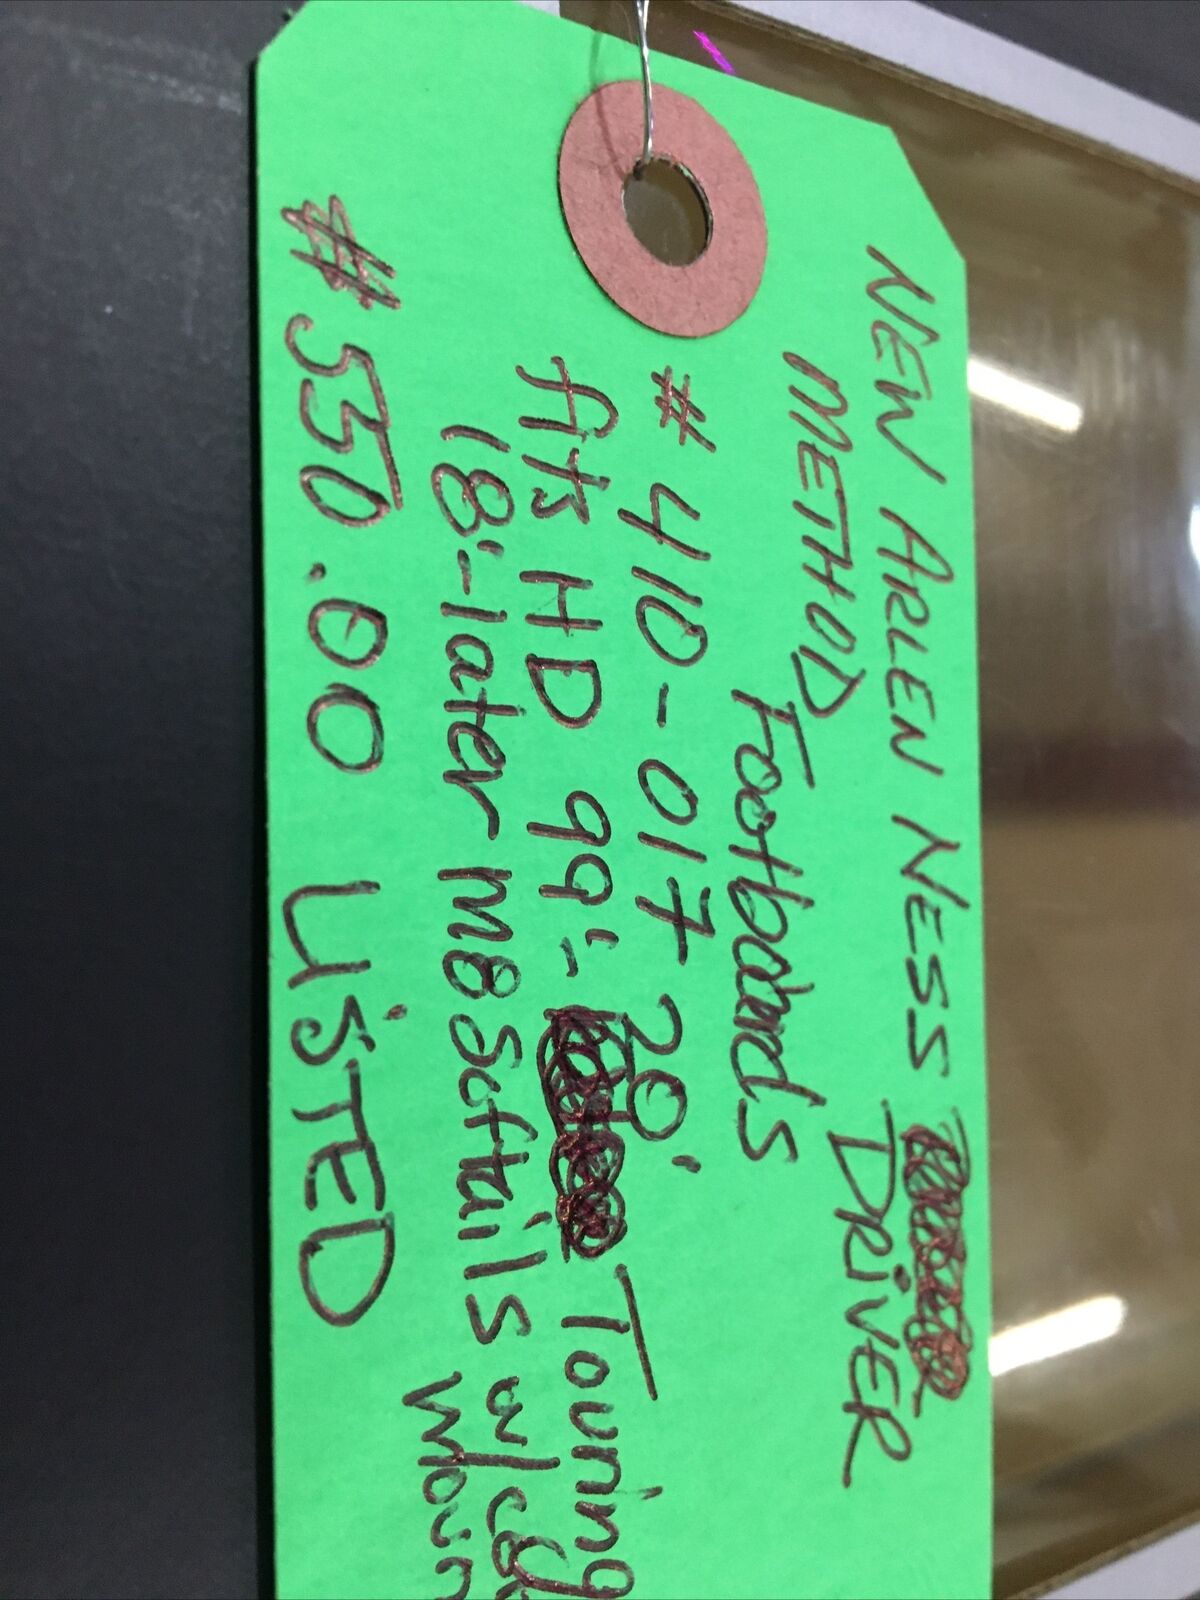 NEW ARLEN NESS DRIVER
METHOD Footboards
#410-017 20'
fits HD 99'- Touring
18'-later M8 Softails w/
#550.00 LiSTED